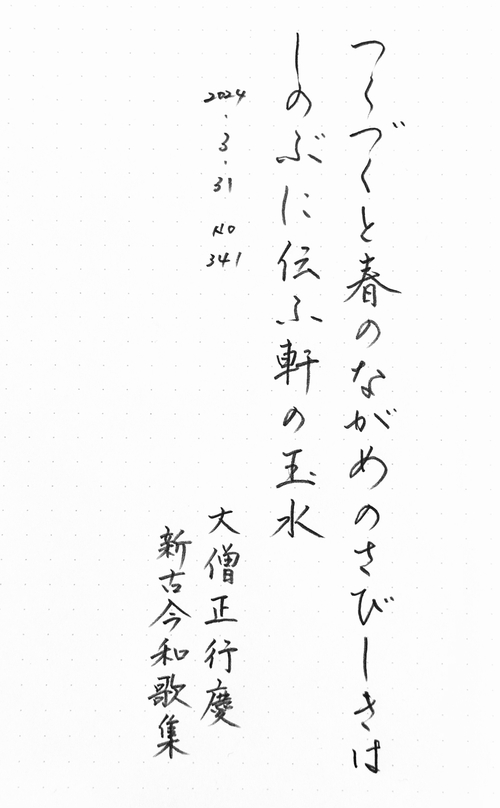 つくづくと春のながめのさびしきは
しのぶに伝ふ軒の玉水
2024・3・31 No 341
大僧正行慶
新古今和歌集